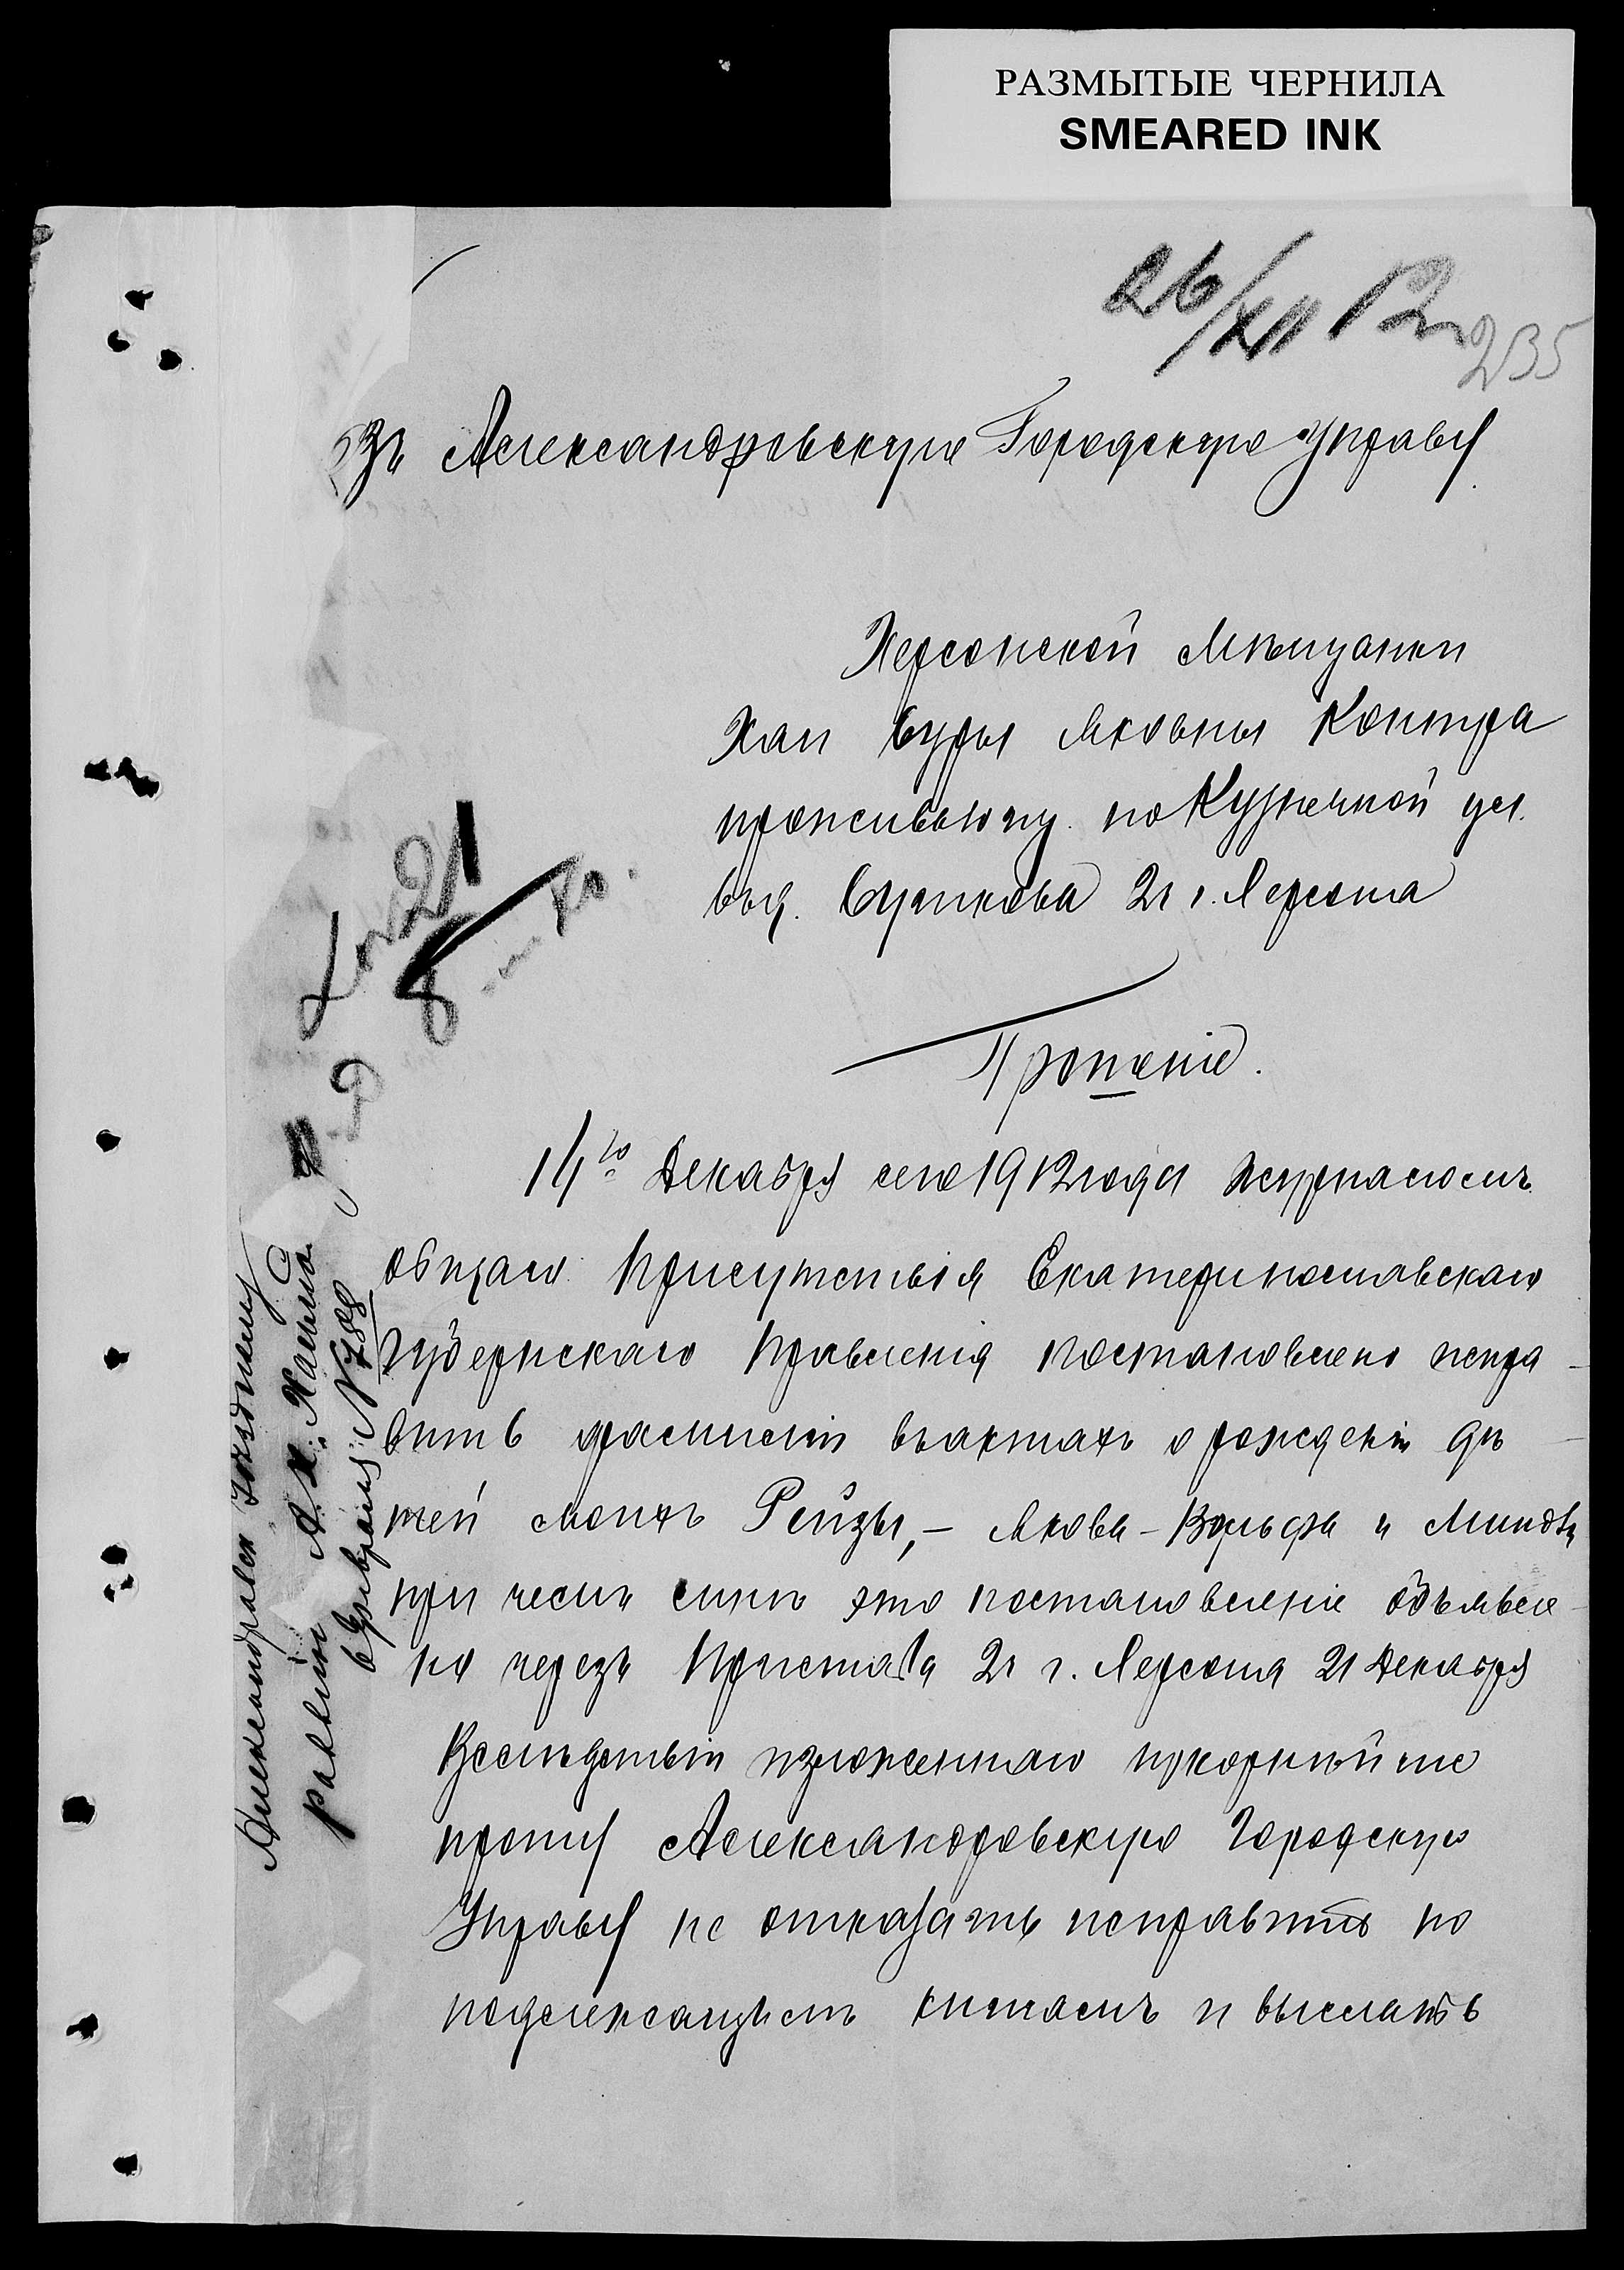 РАЗМЫТЫЕ ЧЕРНИЛА
SMEARED INK
26/XII 12
235
Въ Александровскую Городскую Управу
Херсонской Мѣщанки
Хаи Суры Яковны Контра
прожив по Кузнечной ул.
въ д. 2 ч г. Херсона
Прошеніе.
14го Декабря сего 1912 года журналомъ
общаго Присутствія Екатеринославскаго
Губернскаго Правленія постановлено испра-
вить фамиліи въ актахъ о рожденіи дѣ-
тей моихъ Рейзы, - Якова - Вольфа и
при чемъ мнѣ это постановленіе объявле-
но черезъ Пристава 2 ч г. Херсона 21 Декабря
Вслѣдствіи изложеннаго покорнѣйше
прошу Александровскую Городскую
Управу не отказать исправить по
подлежащимъ книгамъ и выслать
21
8
Александровск
раввину А. Х.
февраля N 788